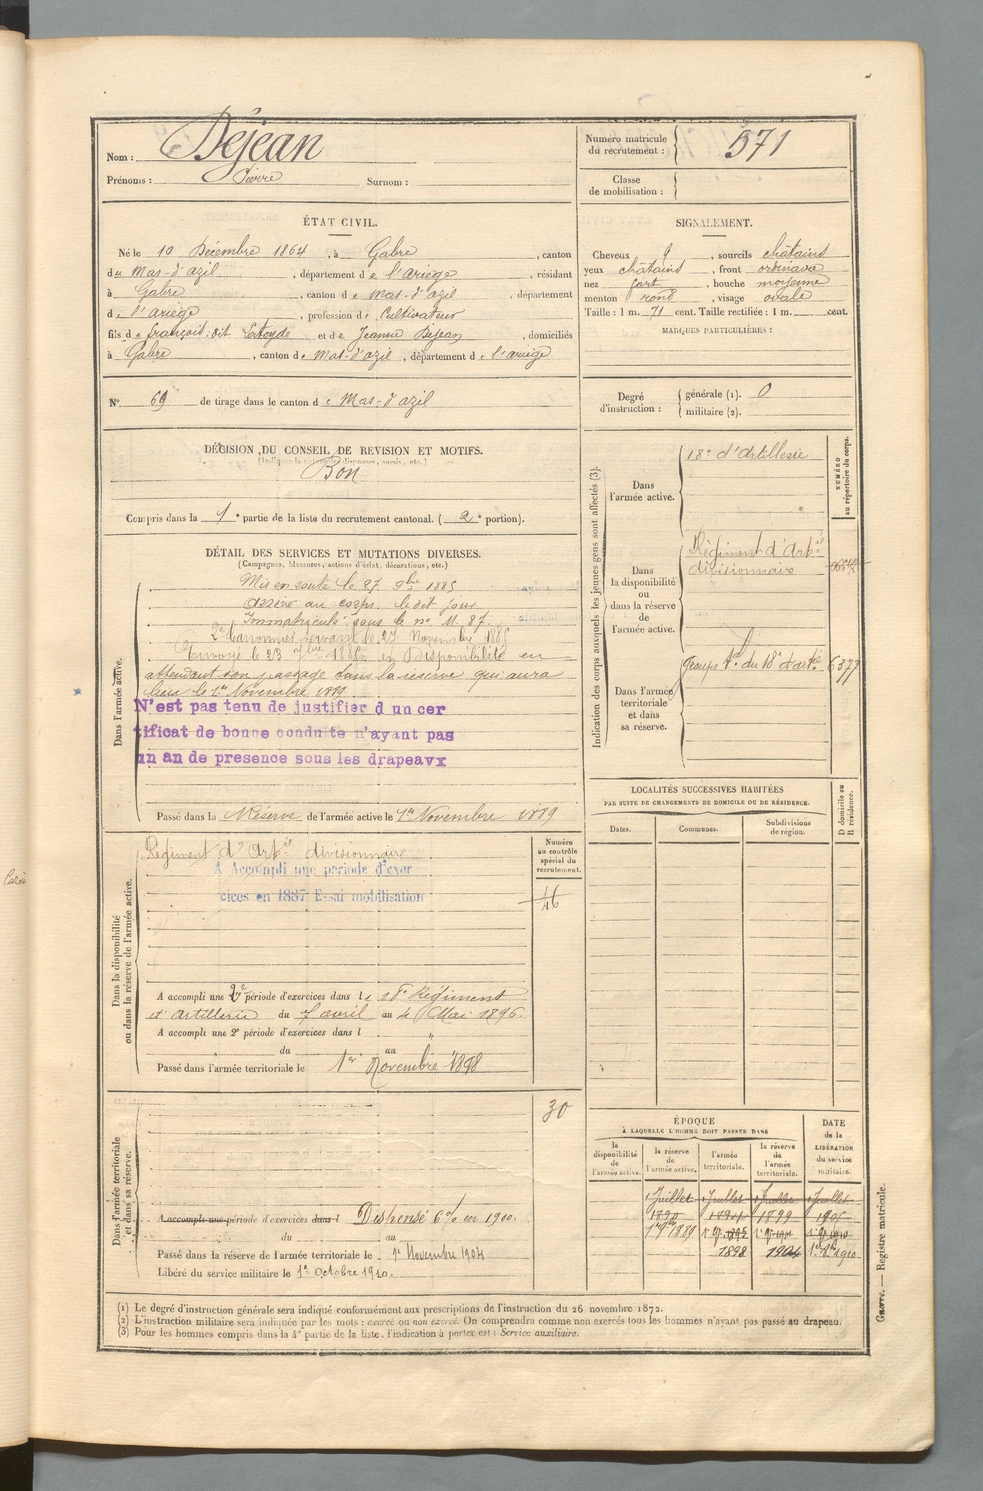 Nom : Déjean
Prénoms : Pierre Surnom :
Numéro matricule du recrutement : 571
Classe de mobilisation :
ÉTAT CIVIL.
Né le 10 Décembre 1864, à Gabre, canton
du Mas-d'azil, département de l'ariège, résidant
à Gabre, canton de Mas-d'azil, département
de l'ariège, profession de Cultivateur
fils de françois, dit et de Jeanne Dejean, domiciliés
à Gabre, canton de Mas-d'azil, département de l'ariège
N° 69 de tirage dans le canton de Mas-d'azil
SIGNALEMENT.
Cheveux , sourcils châtains
yeux châtains, front ordinaire
nez fort, bouche moyenne
menton rond, visage ovale
Taille : 1 m. 71 cent. Taille rectifiée : 1 m. cent.
MARQUES PARTICULIÈRES :
Degré d'instruction : générale (1). 0
militaire (2).
DÉCISION DU CONSEIL DE REVISION ET MOTIFS.
Bon
Compris dans la 1e partie de la liste du recrutement cantonal. (2e portion).
DÉTAIL DES SERVICES ET MUTATIONS DIVERSES.
(Campagnes, blessures, actions d'éclat, décorations, etc.)
Dans l'armée active.
Mis en route le 27 9bre 1885
arrivé au corps le dit jour
Immatriculé sous le no 11.87.
2e Canonnier servant le 27 Novembre 1885
Envoyé le 23 en Disponibilité en
attendant son passage dans la réserve qui aura
lieu le 1er Novembre 1889
N'est pas tenu de justifier d un cer
tificat de bonne conduite n'ayant pas
un an de presence sous les drapeaux
Passé dans la Réserve de l'armée active le 1er Novembre 1889
Indication des corps auxquels les jeunes gens sont affectés (3).
NUMÉRO au répertoire du corps.
Dans l'armée active.
18e d'Artillerie
Dans la disponibilité ou dans la réserve de l'armée active.
Régiment d'Artie
divisionnaire
Dans l'armée territoriale et dans sa réserve.
groupe tal du 18e d'artie 6377
LOCALITÉS SUCCESSIVES HABITÉES
PAR SUITE DE CHANGEMENTS DE DOMICILE OU DE RÉSIDENCE.
D domicile ou R résidence.
Dates. Communes. Subdivisions de région.
Dans la disponibilité ou dans la réserve de l'armée active.
Numéro au contrôle spécial du recrutement.
Régiment d'Artie divisionnaire
A Accompli une période d'exer
cices en 1887 Essai mobilisation
46
A accompli une 2e période d'exercices dans le 18e Régiment
d'artillerie du 7 avril au 4 Mai 1896.
A accompli une 2e période d'exercices dans l
du au
Passé dans l'armée territoriale le 1er Novembre 1898
Dans l'armée territoriale et dans sa réserve.
30
A accompli une période d'exercices dans l Dispensé 6% en 1900.
du au
Passé dans la réserve de l'armée territoriale le 1er Novembre 1904
Libéré du service militaire le 1er Octobre 1910.
ÉPOQUE
À LAQUELLE L'HOMME DOIT PASSER DANS
DATE de la LIBÉRATION du service militaire.
la disponibilité de l'armée active. la réserve de l'armée active. l'armée territoriale. la réserve de l'armée territoriale.
1 Juillet 1 Juillet 1 Juillet 1 Juillet
1890 1894 1899 1905
1889
1898 1904 1910
(1) Le degré d'instruction générale sera indiqué conformément aux prescriptions de l'instruction du 26 novembre 1872.
(2) L'instruction militaire sera indiquée par les mots : exercé ou non exercé. On comprendra comme non exercés tous les hommes n'ayant pas passé au drapeau.
(3) Pour les hommes compris dans la 4e partie de la liste, l'indication à porter est : Service auxiliaire.
Guerre. — Registre matricule.